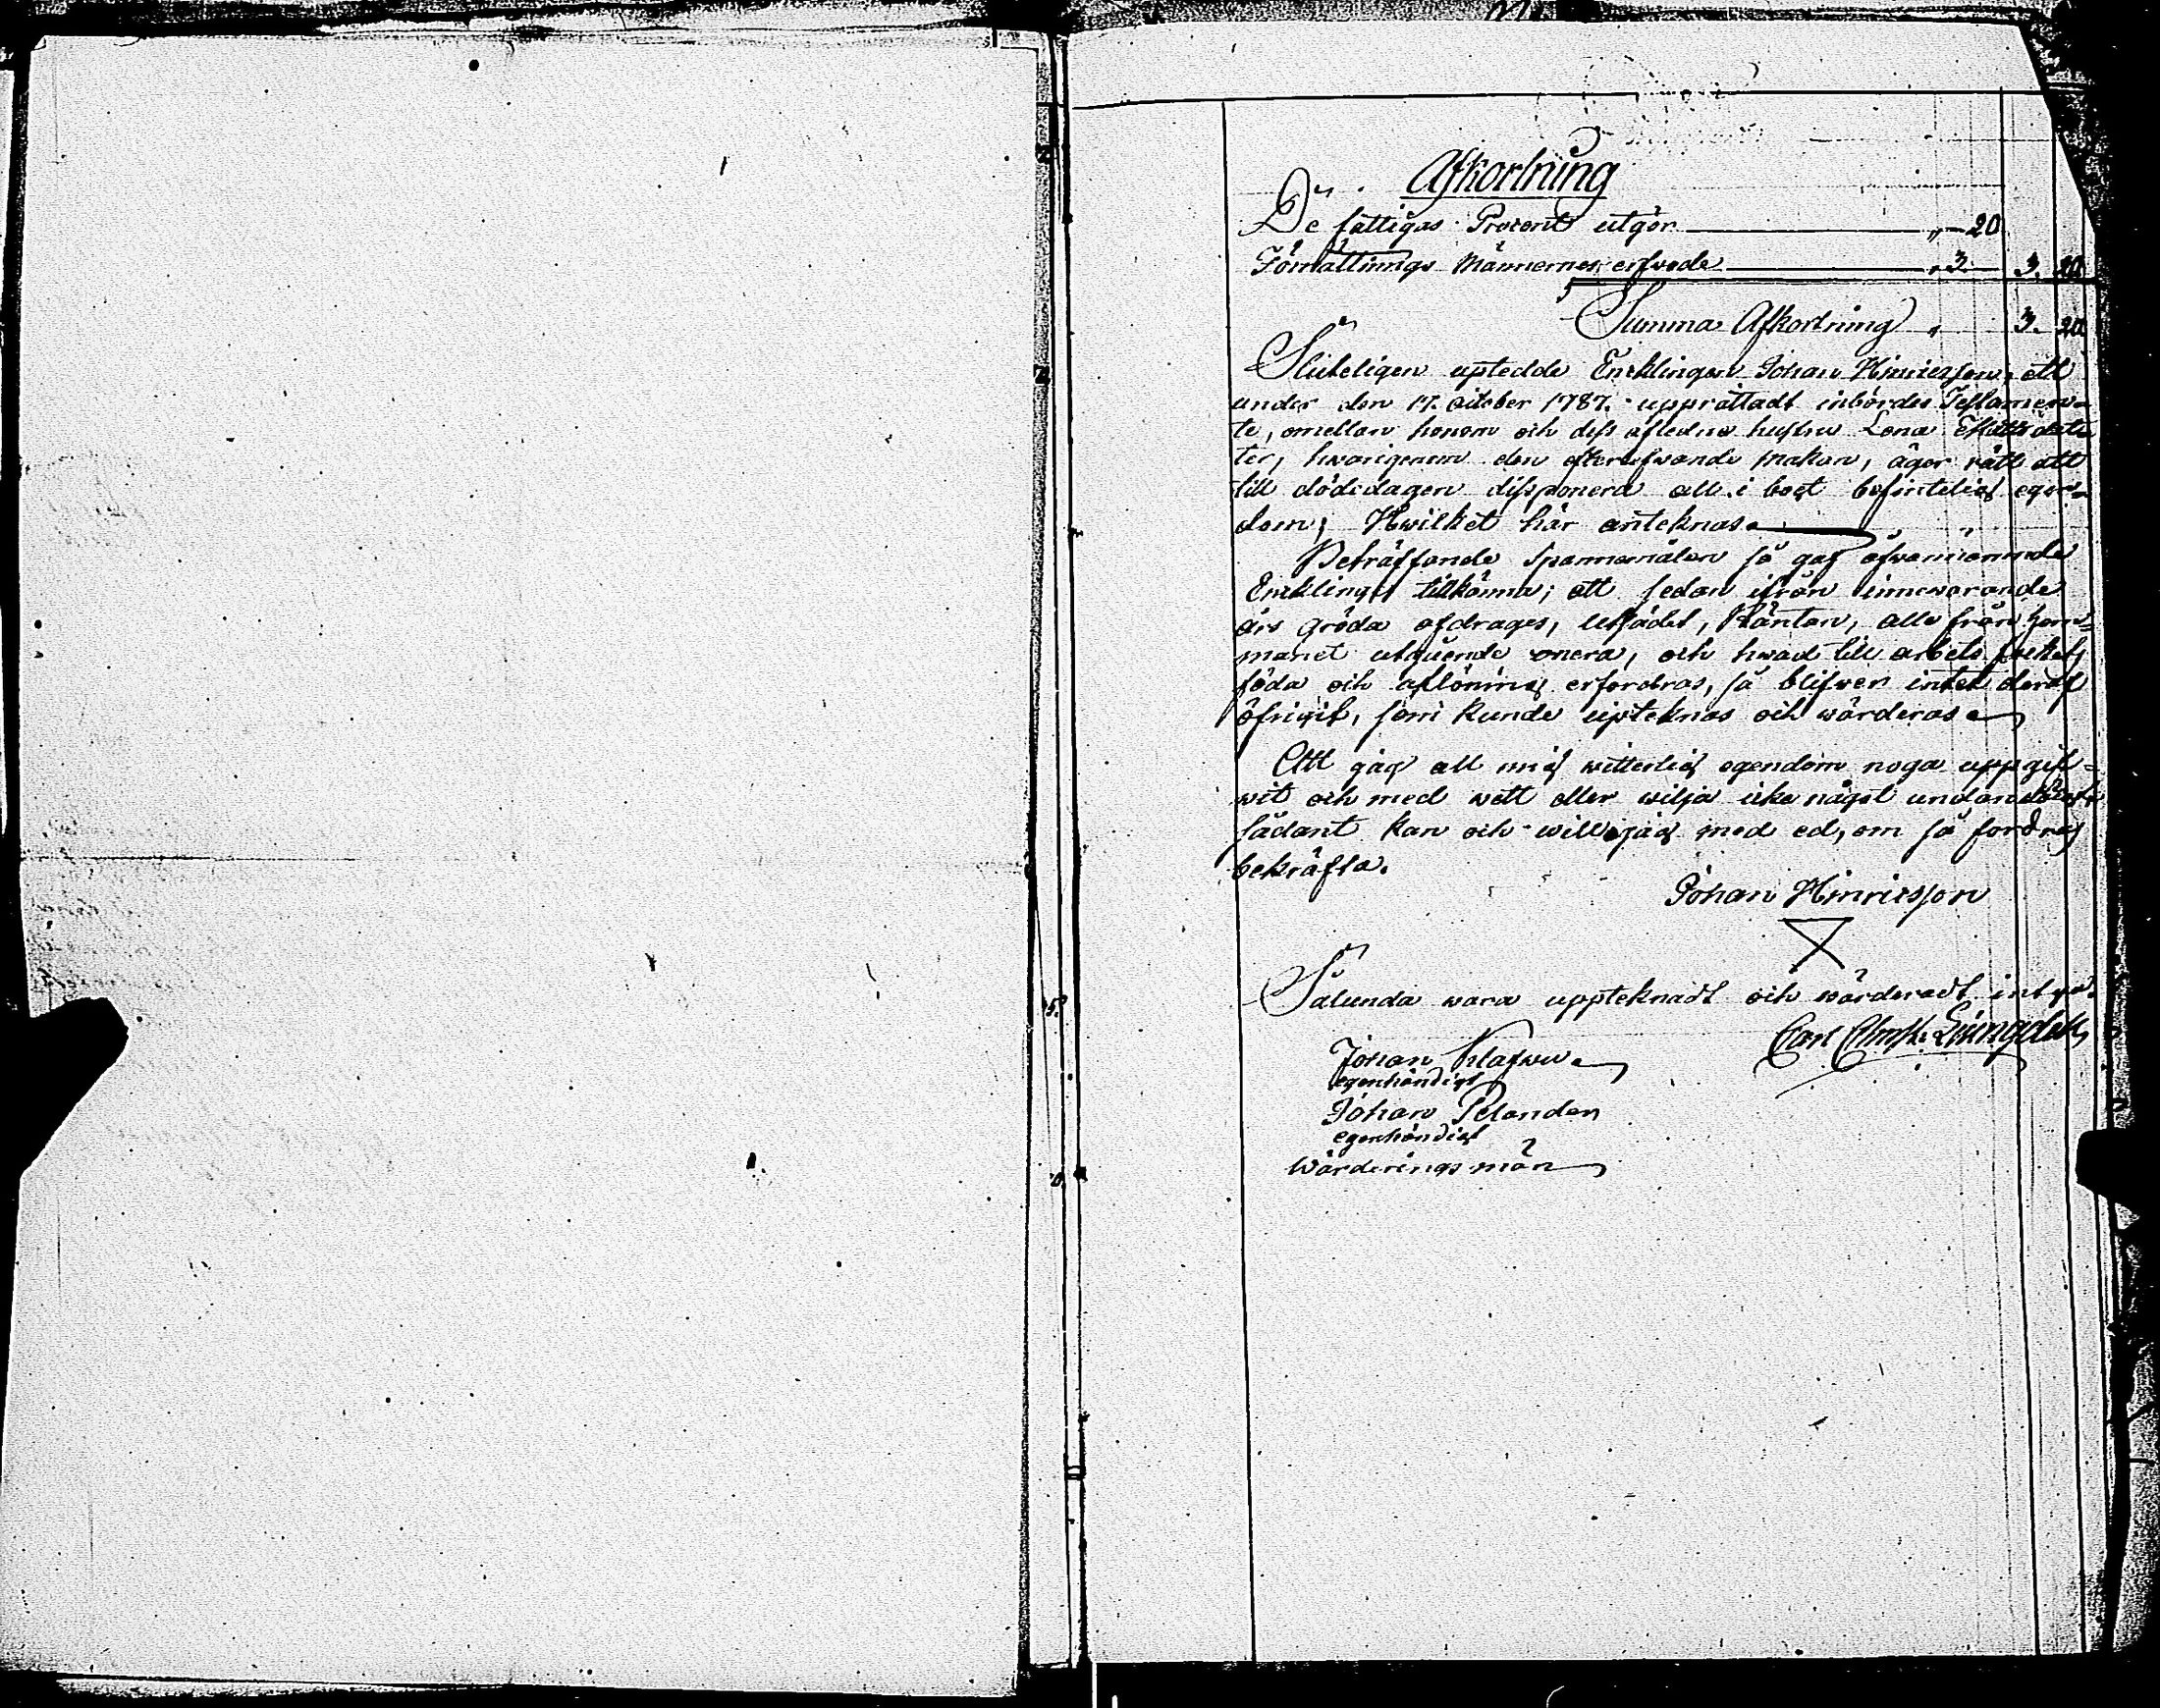 Afkortning
De fattigas Procent utgör „ 20
Förrättnings Männernes arfwode „ 3. 3. 20
Summa Afkortning „ 3. 20
Sluteligen uptedde Encklingen Johan Hinricsson, ett
under den 17. October 1787. upprättadt inbördes Testamen-
te, emellan honom och dess afledna hustru Lena
ter, hwarigenom den efterlefwande makan, äger rätt att
till dödedagen disponera all i boet befintelig egen-
dom; Hwilket här anteknas.
Beträffande Spannemålen så gaf ofwannämnde
Enckling tillkänna; att sedan ifrån innewarande
års gröda afdrages, utsädet, Räntan, alla från hem-
manet utgående onera, och hwad till arbets folkets
föda och aflöning erfordras, så blifwer intet deraf
öfrigit, som kunde upteknas och wärderas.
Att jag all mig witterlig egendom noga uppgif-
wit och med wett eller wilja icke något
sådant kan och will jag med ed, om så fordras
bekräfta.
Johan Hinricsson
Sålunda wara uppteknadt och wärderadt intyga.
Carl
Johan Klafwu
egenhändigt
Johan Pelander
egenhändigt
Wärderings män